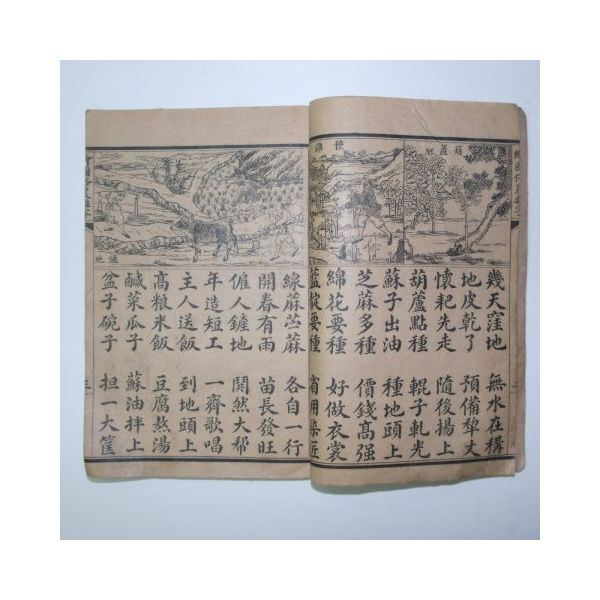 種綿
葫蘆
幾天窪地 無水在構
地皮乾了 預備犁丈
懷耙先走 隨後揚上
葫蘆點種 輥子軋光
蘇子出油 種地頭上
芝蔴多種 價錢高强
綿花要種 好做衣裳
藍靛要種 省用染匠
線蔴苎蔴 各自一行
開春有雨 苗長發旺
僱人鏟地 鬨然大帮
年造短工 一齊歌唱
主人送飯 到地頭上
高粮米飯 豆腐熬湯
鹹菜瓜子 蘇油拌上
盆子碗子 担一大筐